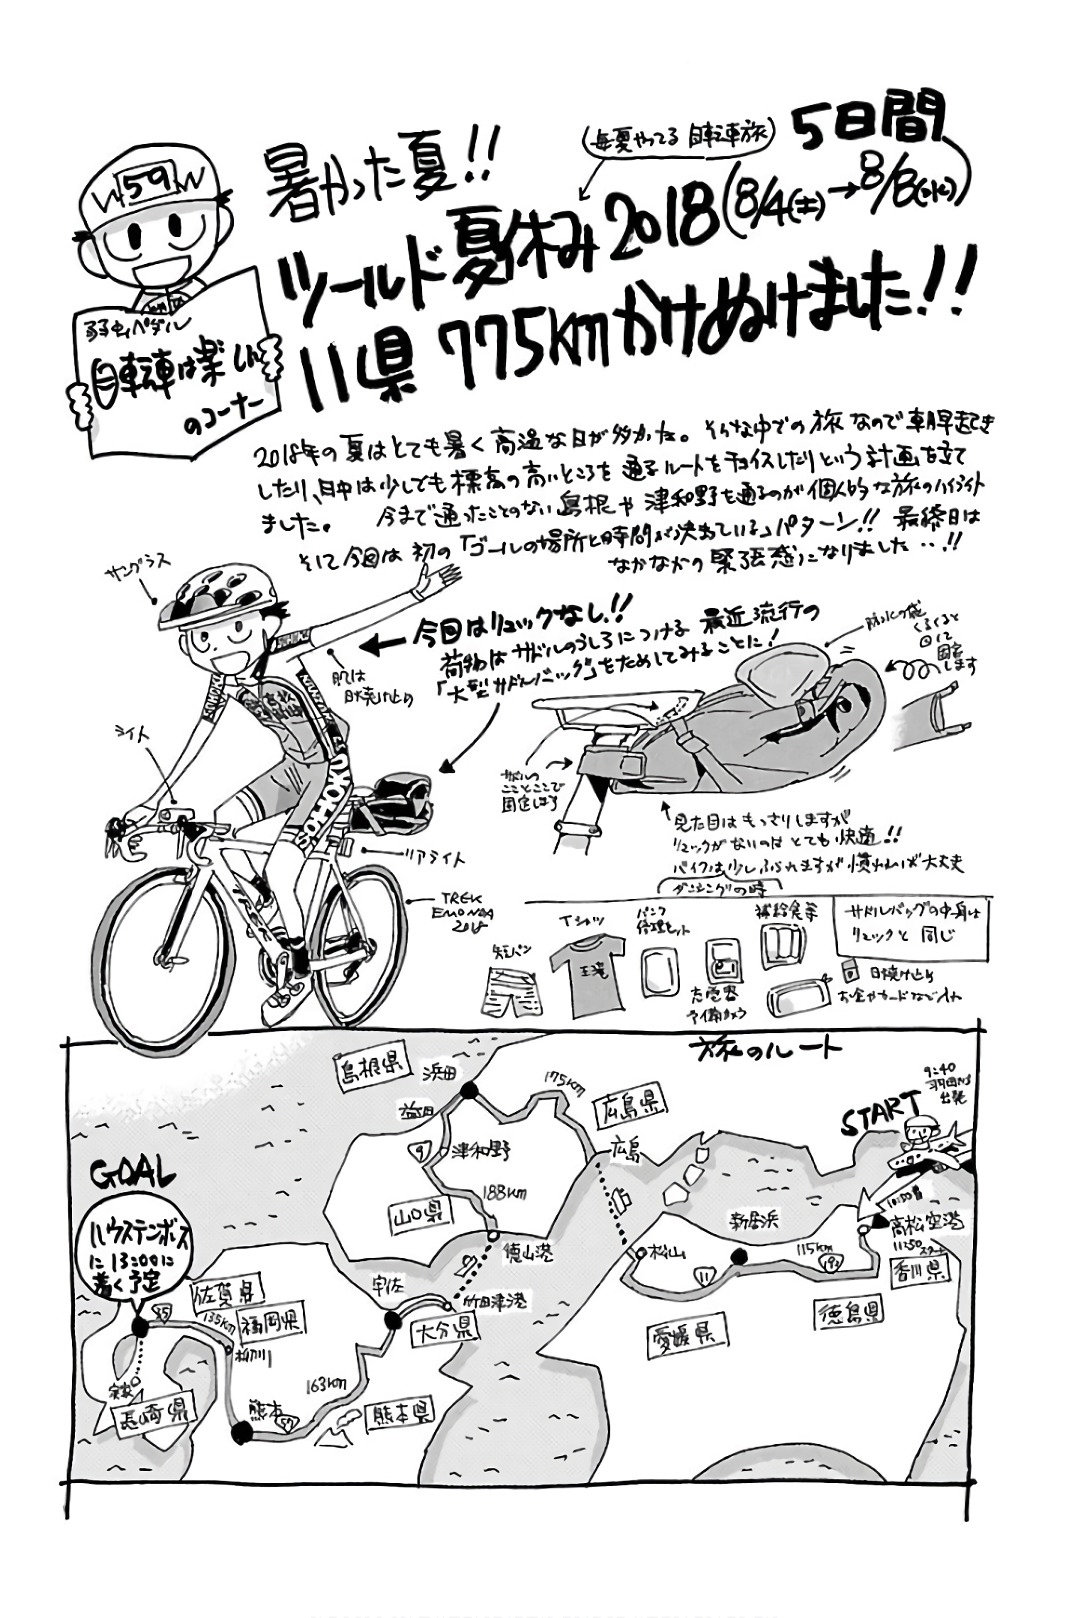 59
弱虫ペダル
自転車は楽しい
のコーナー
暑かった夏!!
(毎夏やってる 自転車旅)
5日間
ツールド夏休み2018(8/4(土)→8/8(水))
11県 775kmかけぬけました!!
2018年の夏はとても暑く高温な日が多かった。そんな中での旅なので朝早起き
したり、日中は少しでも標高の高いところを通るルートをチョイスしたりという計画を立て
ました。 今まで通ったことのない島根や津和野を通るのが個人的な旅のハイライト
そして今回は初の「ゴールの場所と時間が決まっている」パターン!! 最終日は
なかなかの緊張感になりました…!!
サングラス
今回はリュックなし!!
荷物はサドルのうしろにつける 最近流行の
「大型サドルバッグ」をためしてみることに!
肌は
日焼け止め
ライト
SOHOKU
リアライト
TREK
EMONDA
2018
防水の袋
くるくると
回して
固定
します
サドルの
こことここで
固定します
見た目はもっさりしますが
リュックがないのはとても快適!!
バイクは少しふられますが慣れれば大丈夫
ダンシングの時
サドルバッグの中身は
リュックと同じ
短パン
Tシャツ
王滝
パンク
修理セット
充電器
予備カメラ
補給食等
日焼け止め
お金やカードなど入れ
旅のルート
9:40
羽田から
出発
START
高松空港
11:50スタート
香川県
徳島県
193
115km
新居浜
11
松山
愛媛県
広島県
広島
175km
島根県
浜田
益田
9
津和野
188km
山口県
徳山港
竹田津港
大分県
宇佐
163km
熊本県
57
熊本
柳川
福岡県
佐賀県
135km
35
長崎県
実家
GOAL
ハウステンボス
に13:00に
着く予定